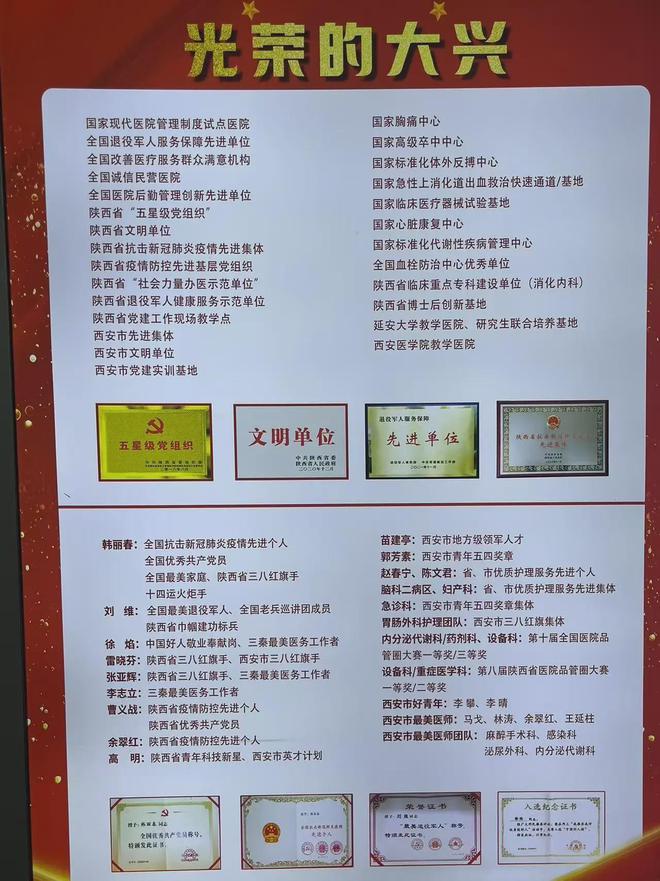 光荣的大兴
国家现代医院管理制度试点医院
全国退役军人服务保障先进单位
全国改善医疗服务群众满意机构
全国诚信民营医院
全国医院后勤管理创新先进单位
陕西省“五星级党组织”
陕西省文明单位
陕西省抗击新冠肺炎疫情先进集体
陕西省疫情防控先进基层党组织
陕西省“社会力量办医示范单位”
陕西省退役军人健康服务示范单位
陕西省党建工作现场教学点
西安市先进集体
西安市文明单位
西安市党建实训基地
国家胸痛中心
国家高级卒中中心
国家标准化体外反搏中心
国家急性上消化道出血救治快速通道/基地
国家临床医疗器械试验基地
国家心脏康复中心
国家标准化代谢性疾病管理中心
全国血栓防治中心优秀单位
陕西省临床重点专科建设单位（消化内科）
陕西省博士后创新基地
延安大学教学医院、研究生联合培养基地
西安医学院教学医院
五星级党组织
文明单位
中共陕西省委
陕西省人民政府
二〇二〇年十二月
退役军人服务保障
先进单位
先进集体
韩丽春：全国抗击新冠肺炎疫情先进个人
全国优秀共产党员
全国最美家庭、陕西省三八红旗手
十四运火炬手
刘 维：全国最美退役军人、全国老兵巡讲团成员
陕西省巾帼建功标兵
徐 焰：中国好人敬业奉献岗、三秦最美医务工作者
雷晓芬：陕西省三八红旗手、西安市三八红旗手
张亚辉：陕西省三八红旗手、三秦最美医务工作者
李志立：三秦最美医务工作者
曹义战：陕西省疫情防控先进个人
陕西省优秀共产党员
余翠红：陕西省疫情防控先进个人
高 明：陕西省青年科技新星、西安市英才计划
苗建亭：西安市地方级领军人才
郭芳素：西安市青年五四奖章
赵春宁、陈文君：省、市优质护理服务先进个人
脑科二病区、妇产科：省、市优质护理服务先进集体
急诊科：西安市青年五四奖章集体
胃肠外科护理团队：西安市三八红旗集体
内分泌代谢科/药剂科、设备科：第十届全国医院品
管圈大赛一等奖/三等奖
设备科/重症医学科：第八届陕西省医院品管圈大赛
一等奖/二等奖
西安市好青年：李 攀、李 晴
西安市最美医师：马戈、林涛、余翠红、王延柱
西安市最美医师团队：麻醉手术科、感染科
泌尿外科、内分泌代谢科
授予：韩丽春 同志
全国优秀共产党员称号，
特颁发此证书。
先进个人
荣誉证书
“最美退役军人”称号，
特颁发此证书。
入选纪念证书